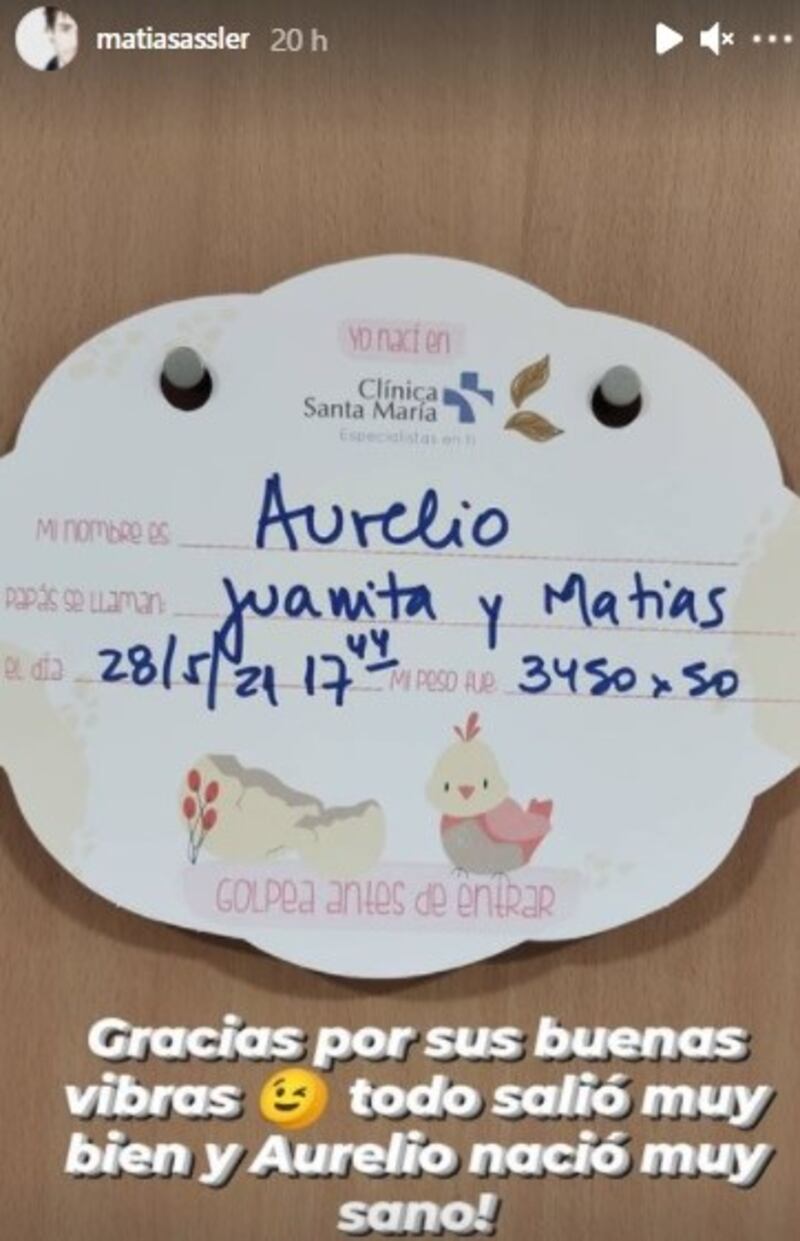 matiasassler 20 h
Yo nací en
Clínica
Santa María
Especialistas en ti
Mi nombre es Aurelio
Papás se llaman: Juanita y Matias
el día 28/5/21 17 44 Mi peso fue 3450 x 50
Golpea antes de entrar
Gracias por sus buenas
vibras 😉 todo salió muy
bien y Aurelio nació muy
sano!